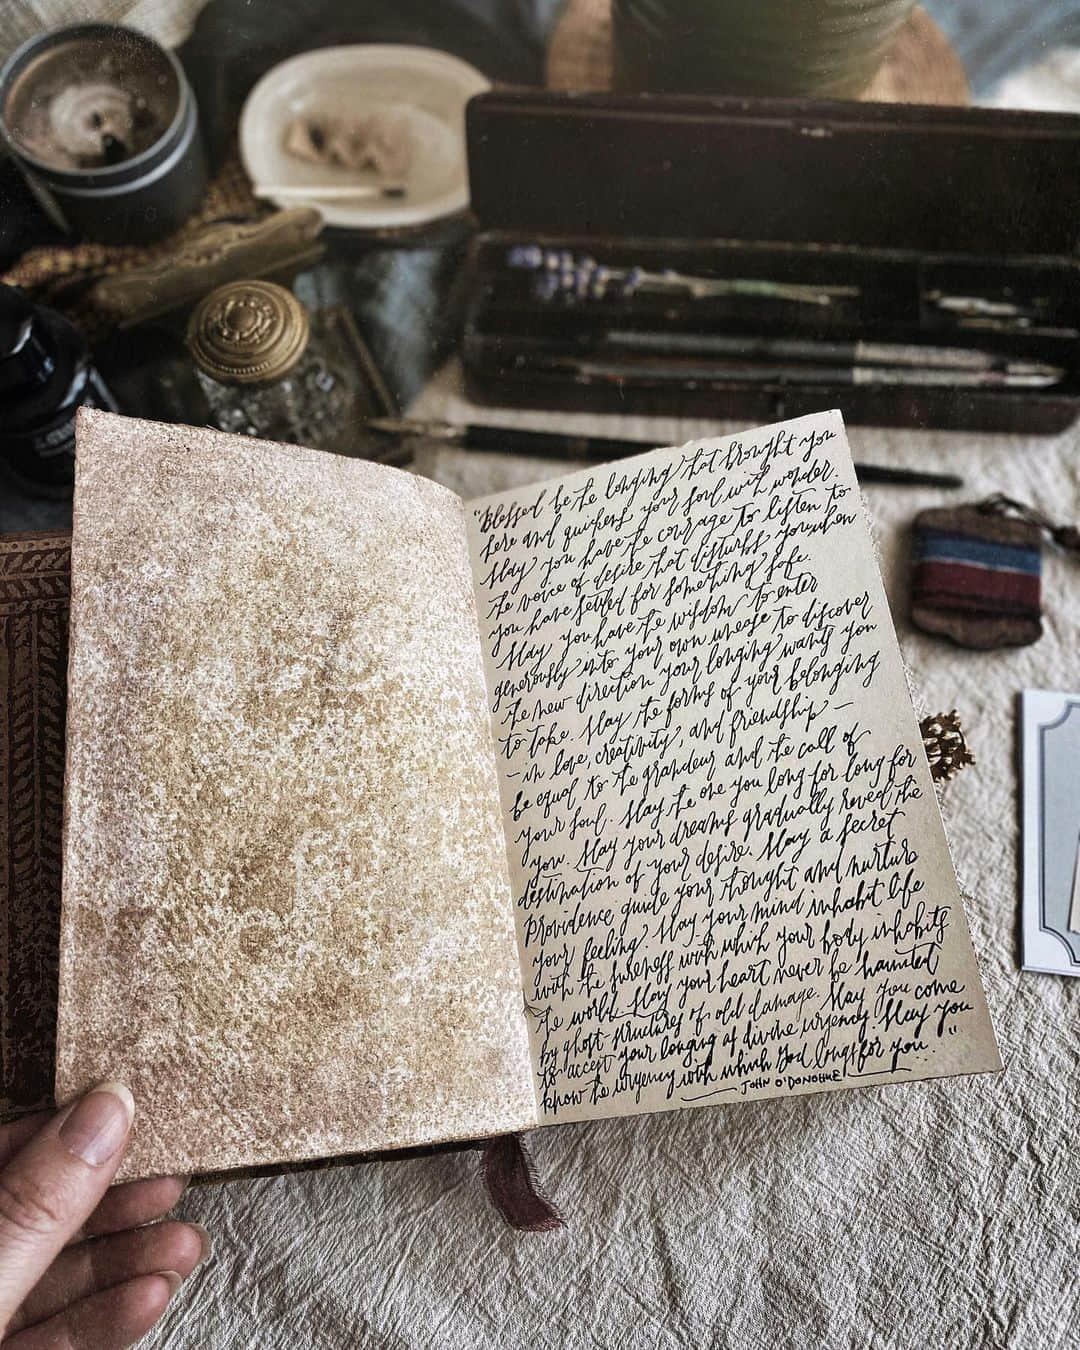 "Blessed be the longing that brought you
here and quickens your soul with wonder.
May you have the courage to listen to
the voice of desire that disturbs you when
you have settled for something safe.
May you have the wisdom to enter
generously into your own unease to discover
the new direction your longing wants you
to take. May the forms of your belonging
– in love, creativity, and friendship –
be equal to the grandeur and the call of
your soul. May the one you long for long for
you. May your dreams gradually reveal the
destination of your desire. May a secret
Providence guide your thought and nurture
your feeling. May your mind inhabit life
with the sureness with which your body inhabits
the world. May your heart never be haunted
by ghost-structures of old damage. May you come
to accept your longing as divine urgency. May you
know the urgency with which God longs for you."
— JOHN O'DONOHUE